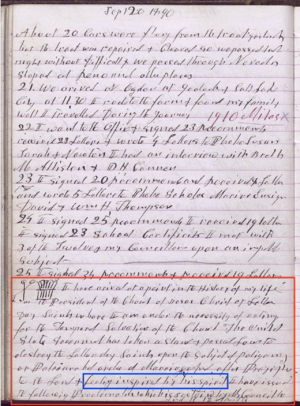 Sept 20 1890
About 20 Cars were
but the Road was repaired & Cleared so we passed last
night without difficulty we passed through Nevada
stoped at Reno and other places
21. We arived at Ogden at
City at 11.30 I rode to the farm & found my family
well I travelled During the Journey 1940 Miles
22 I went to the Office & signed 23 Recommends
received 23 Letters & wrote 4 Letters to Phebe Susan
Sarah & Newton I had an interview with Broth
M. Alliston & D H Cannon
23 I signed 20 Recommends and received 9 letters
and wrote 5 Letters to Phebe
David & Wm H. Thompson
25 I signed 25 Recommends I received 19 letters
I signed 23 School Certificates I met with
3 of the Twelve & my Councillor upon an import
Subject
25 I signed 24 Recommends & received 19 Letters
I have arived at a point in the History of my life
as the President of the Church of Jesus Christ of Latter
Day Saints where I am under the necessity of acting
for the Temporal Salvation of the Church The United
State Government has taken a Stand & passed Laws to
destroy the Latter day Saints upon the Subject of poligamy
or Patriarchal order of Marriage & after Praying
to the Lord & feeling inspired by his spirit I have issued
the following Proclamation which is sustained by My Councillors